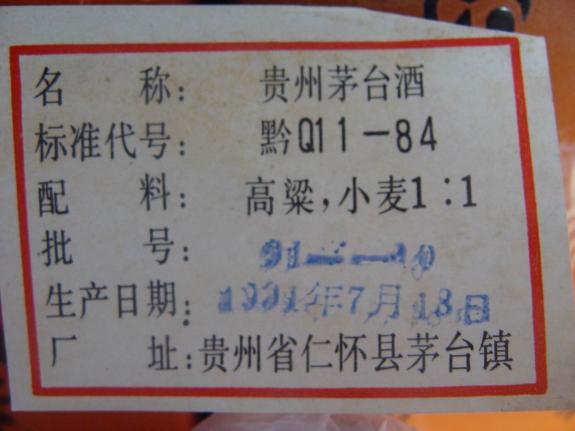 名 称： 贵州茅台酒
标准代号： 黔Q11－84
配 料： 高粱，小麦1：1
批 号：
生产日期： 1991年7月18日
厂 址：贵州省仁怀县茅台镇